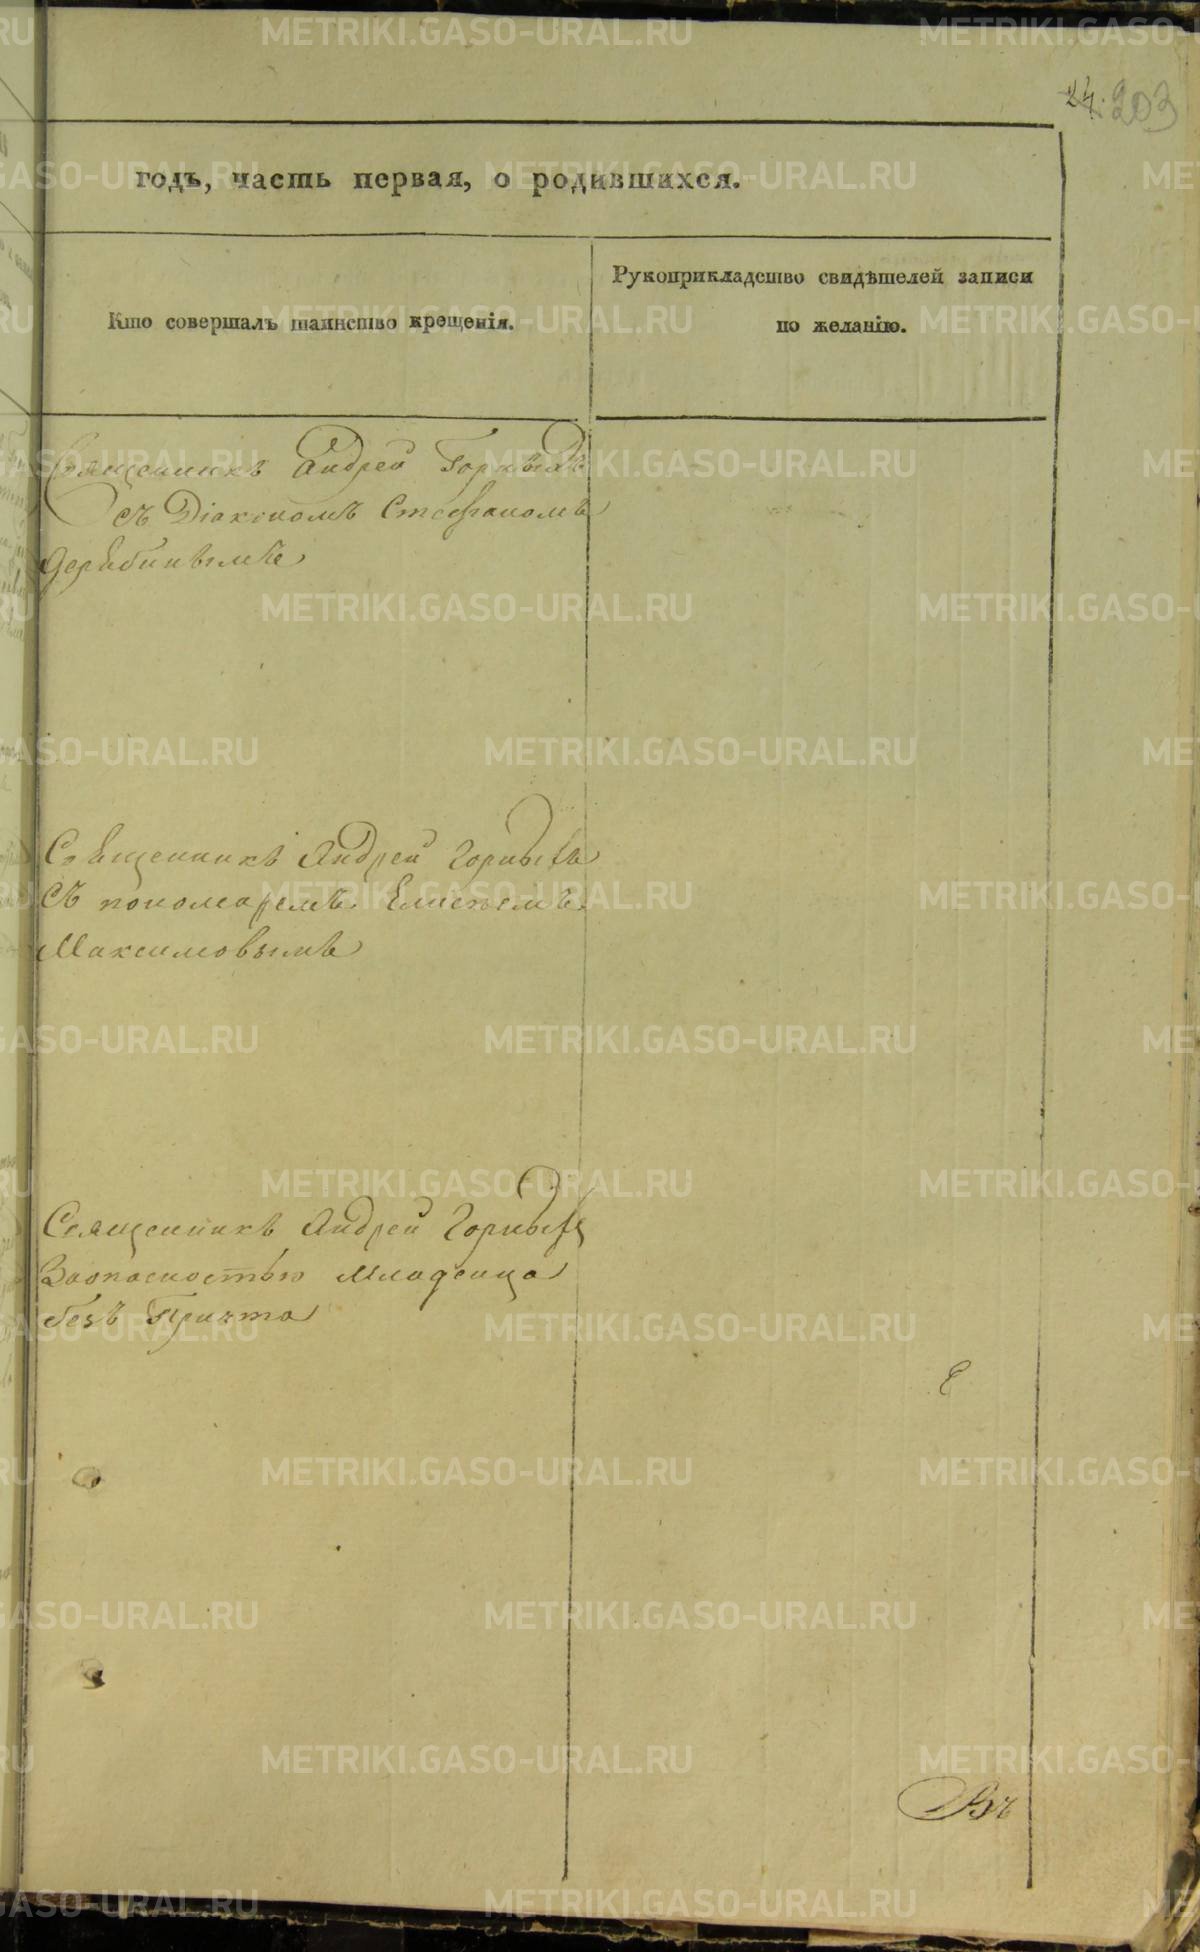 24. 203
годъ, часть первая, о родившихся.
Кто совершалъ таинство крещенія.
Рукоприкладство свидѣтелей записи
по желанію.
Священникъ Андрей Горныхъ
съ Діакономъ Стефаномъ
Дерябинымъ
Священникъ Андрей Горныхъ
съ пономаремъ Елисеемъ
Максимовымъ
Священникъ Андрей Горныхъ
Заопасностью младенца
безъ Причта
Въ
METRIKI.GASO-URAL.RU